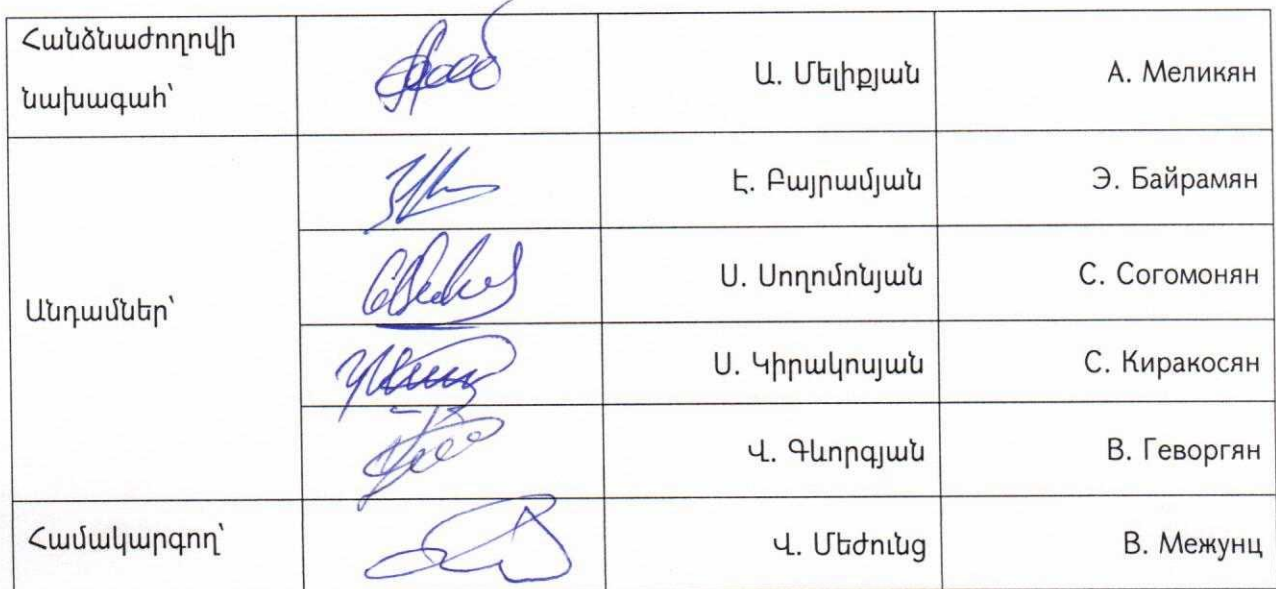 Հանձնաժողովի
նախագահ՝
Ա. Մելիքյան
А. Меликян
Անդամներ՝
Է. Բայրամյան
Э. Байрамян
Ս. Սողոմոնյան
С. Согомонян
Ս. Կիրակոսյան
С. Киракосян
Վ. Գևորգյան
В. Геворгян
Համակարգող՝
Վ. Մեժունց
В. Межунц